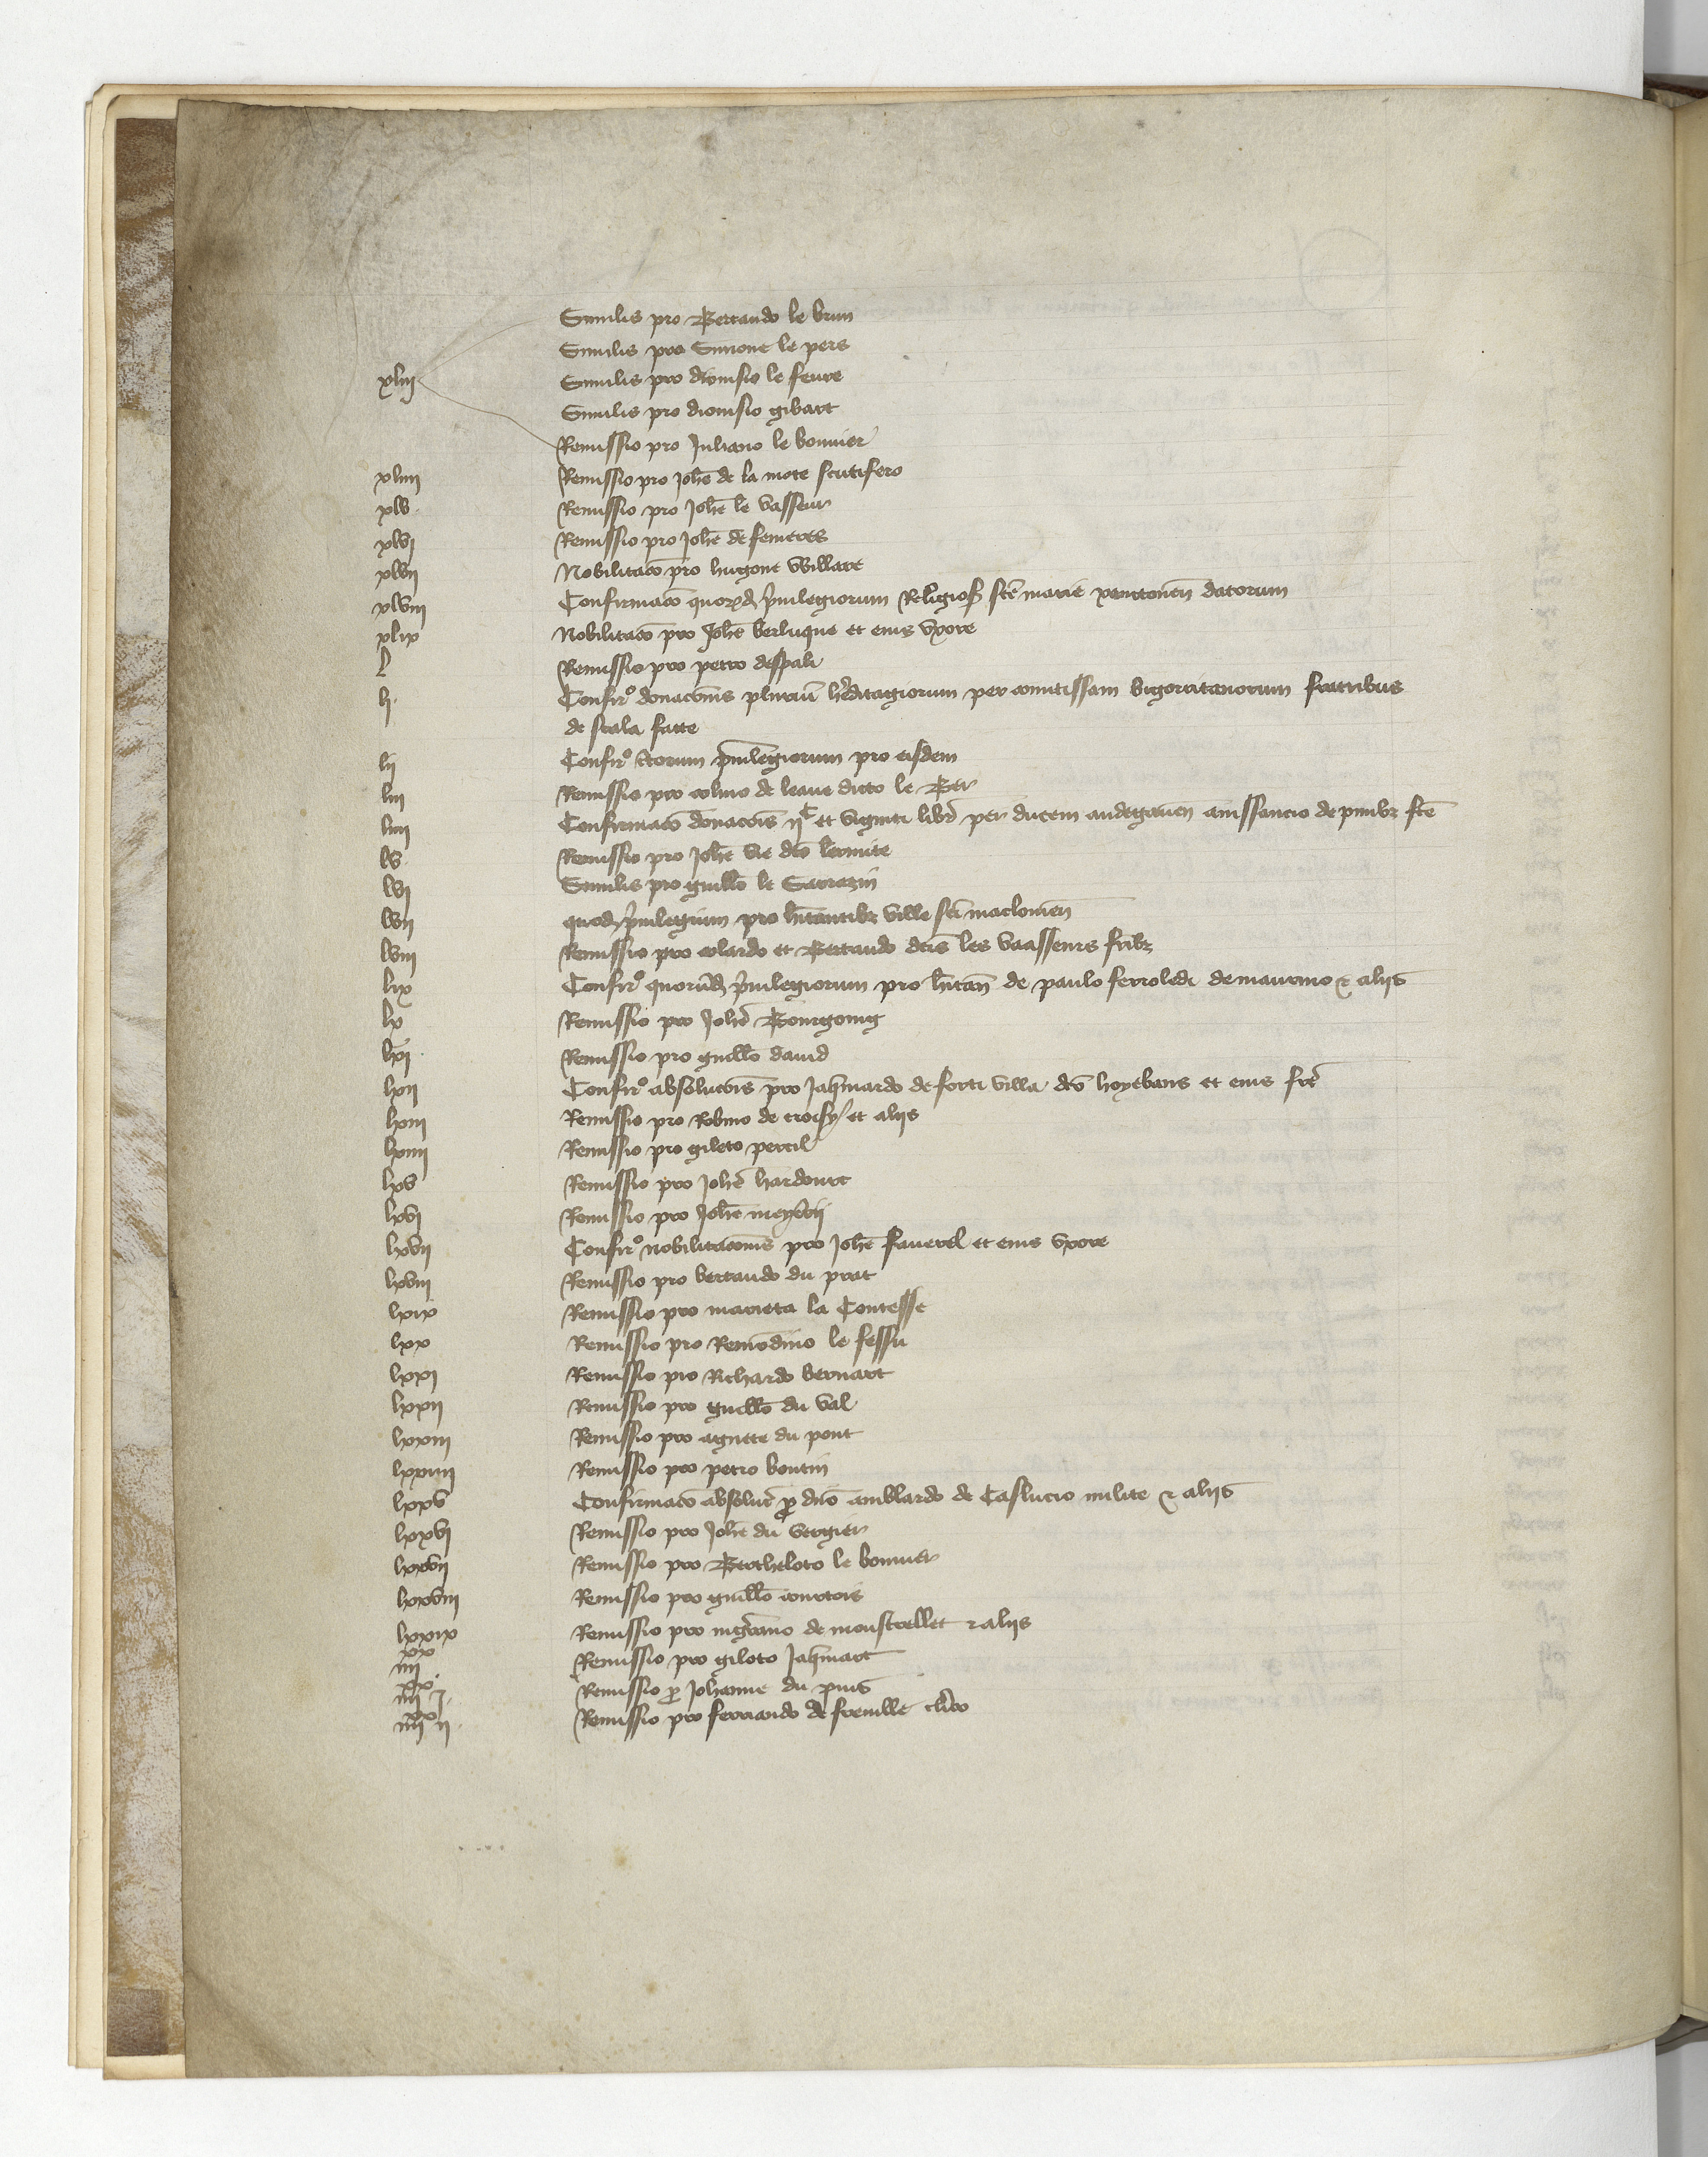 Similis pro Bertrando le brun
Similis pro Simone le pers
xliij Similis pro dionisio le feure
Similis pro dionisio gibart
Remissio pro Juliano le bonnier
xliiij Remissio pro Johe de la mote scutifero
xlv. Remissio pro Johe le vasseur
xlvj Remissio pro Johe de
xlvij Nobilitaco pro hugone Willare
xlviij Confirmaco quorumd priuilegiorum Religios ste marie datorum
xlix Nobilitaco pro Johe berluque et eius vxore
l Remissio pro petro despali
lj. Confiro donaconis plurium hereditagiorum per comitissam bigorritanorum fratribus
de scala facte
lij Confiro priuilegiorum pro eisdem
liij Remissio pro colino de leaue dicto le Ber
liiij Confirmaco donacois ijc et viginti libr per ducem andegauen de
lv. Remissio pro Johe vie dco lermite
lvj Similis pro guillo le Sarrazin
lvij quodd priuilegium pro hitantibz ville sci maclouien
lviij Remissio pro colardo et Bertrando dcis les vaasseurs fribz
lix Confiro quorumd priuilegiorum pro hitan de paulo de et aliis
lx Remissio pro Johe Bourgoing
lxj. Remissio pro guillo dauid
lxij Confiro absolucois pro Jaquemardo de forti villa dco hoyebans et eius fre
lxiij Remissio pro Robino de croisy et aliis
lxiiij Remissio pro gileto percil
lxv Remissio pro Johe hardouvt
lxvj Remissio pro Johe
lxvij Confiro nobilitaconis pro Johe fauerel et eius vxore
lxviij Remissio pro bertrando du prat
lxix Remissio pro marieta la Contesse
lxx Remissio pro Remondino le fessu
lxxj Remissio pro Richardo bernart
lxxij Remissio pro guillo du val
lxxiij Remissio pro agnete du pont
lxxiiij Remissio pro petro boutin
lxxv Confirmaco absoluc pro dno amblardo de Caslucio milite et aliis
lxxvj Remissio pro Johe du vergier
lxxvij Remissio pro Bertheloto le bonnier
lxxviij Remissio pro guillo courtois
lxxix Remissio pro ingerano de monstrellet et aliis
iiijxx Remissio pro giloto Jaquemart
iiijxx j. Remissio pro Johanne du puis
iiijxx ij. Remissio pro ferrando de clico